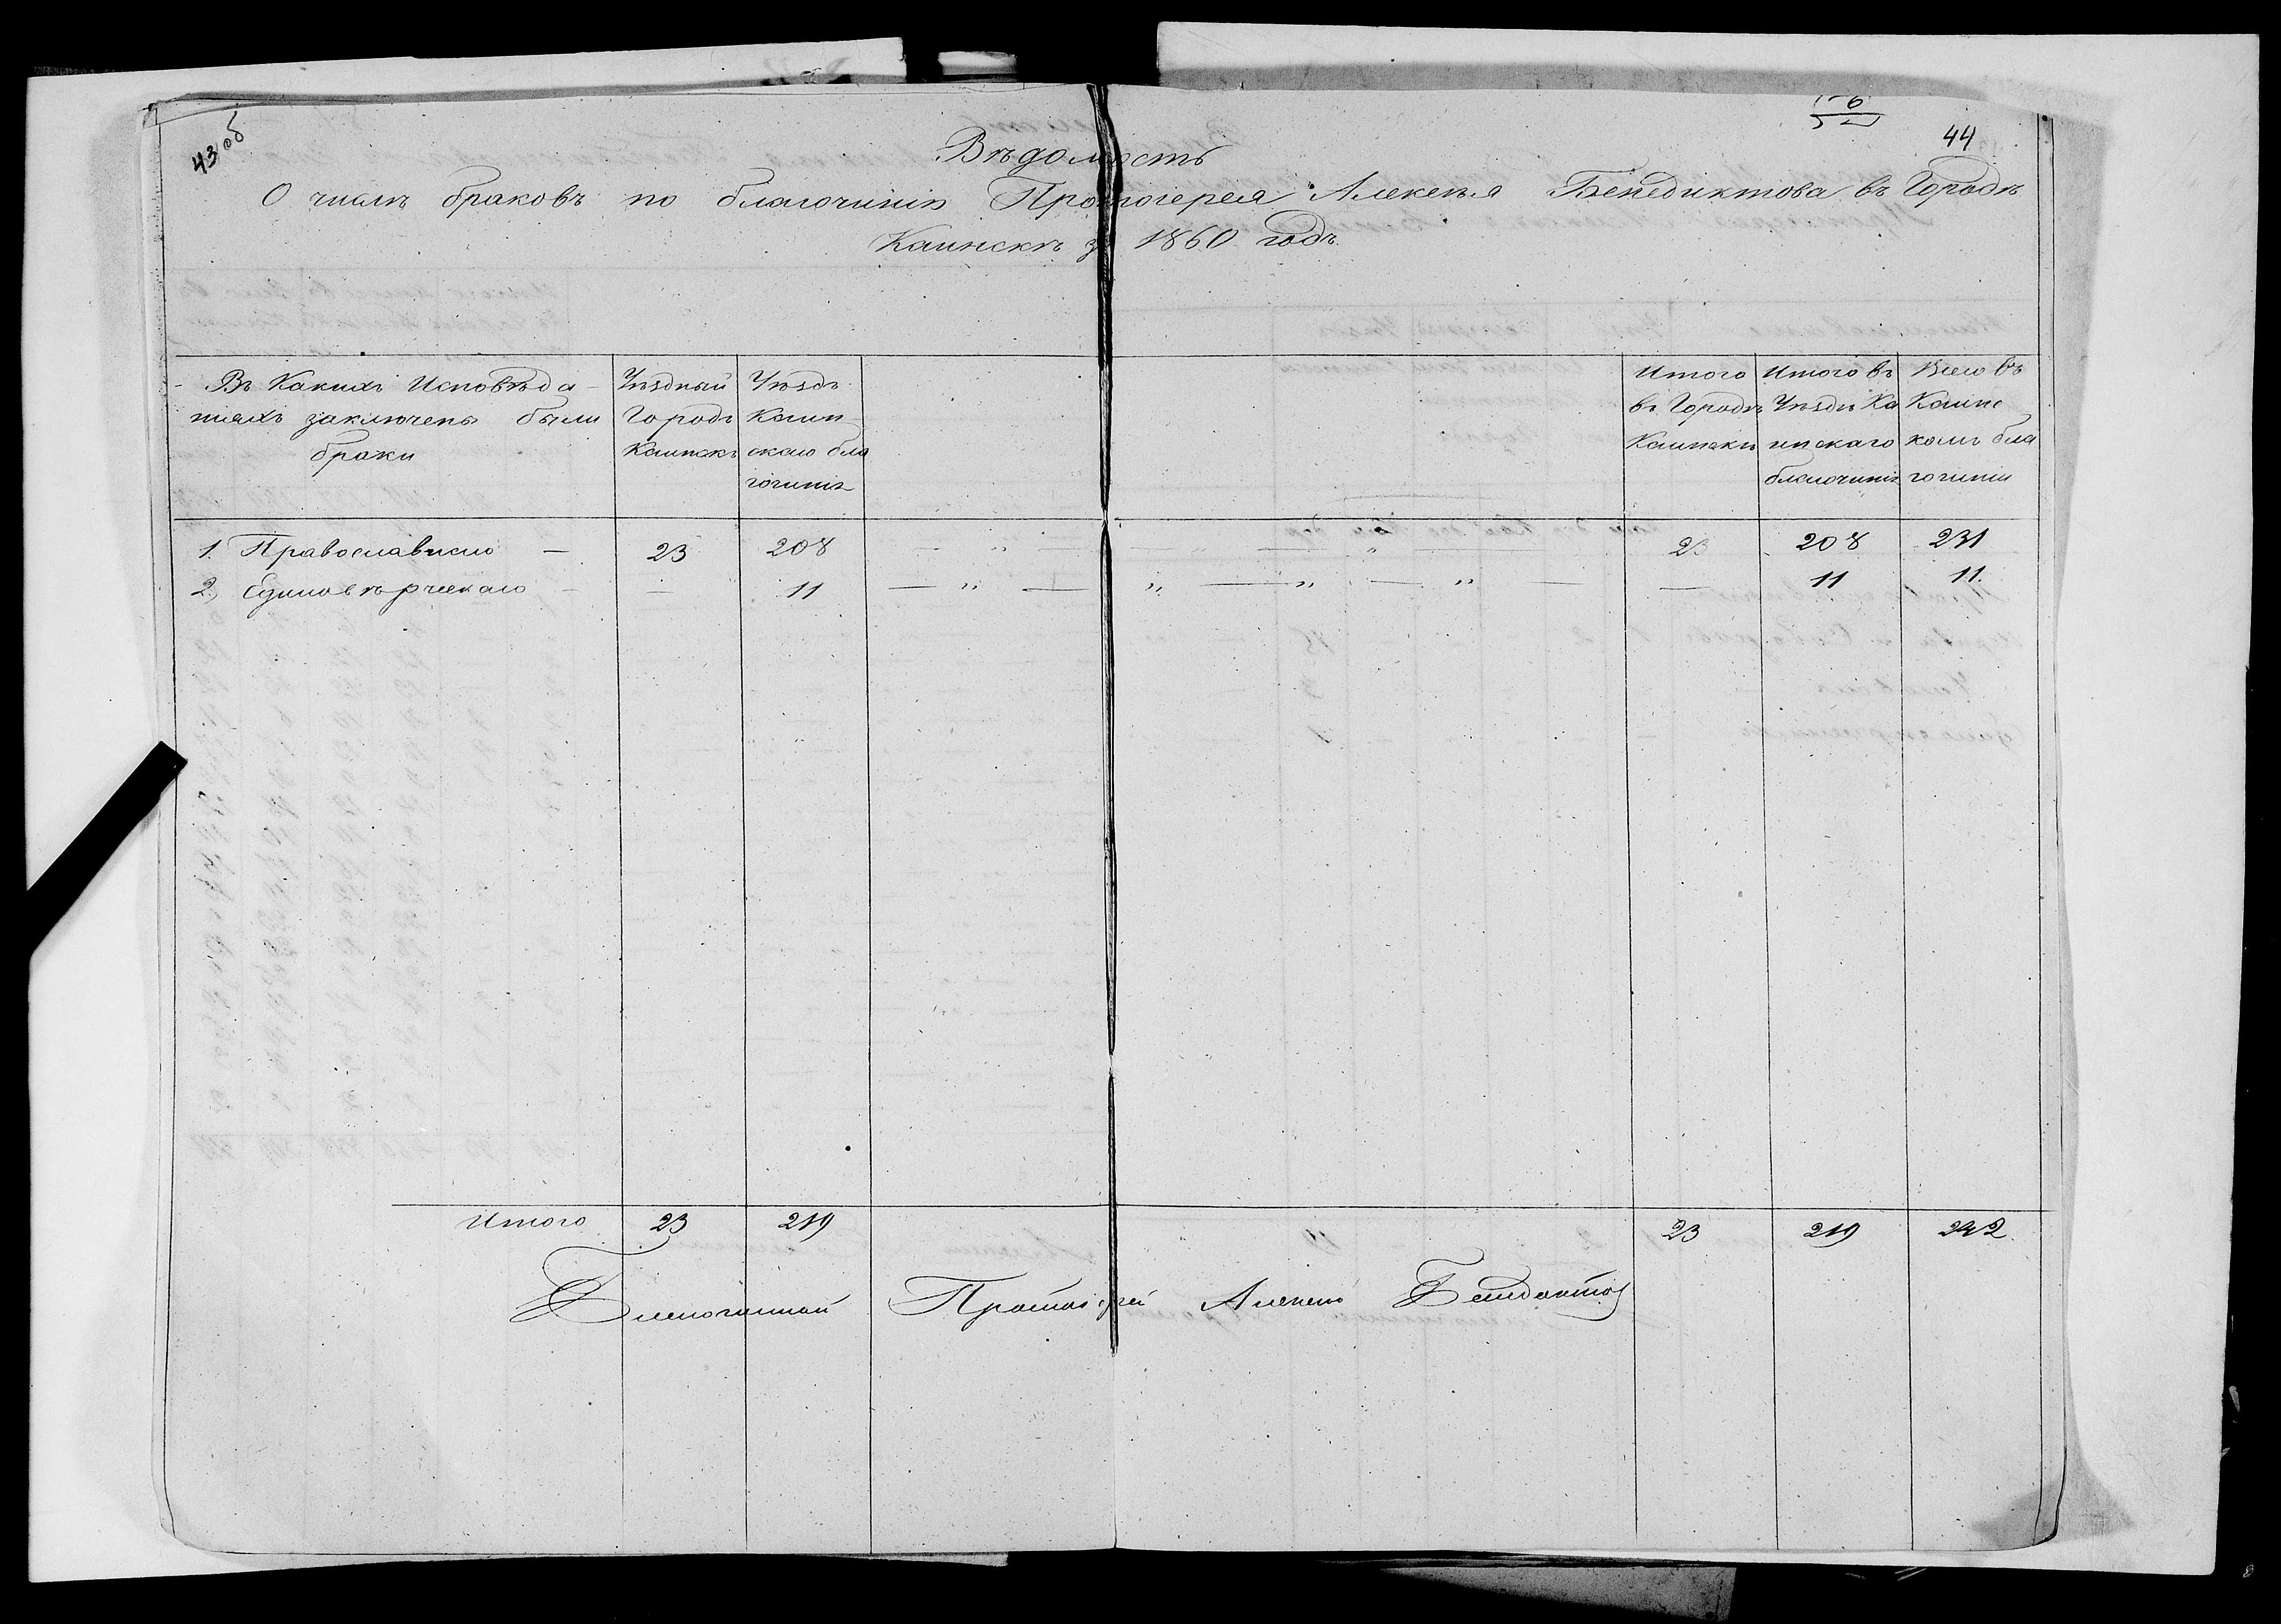 43 об
44
Вѣдомость
О числѣ браковъ по благочинію Протоіерея Алексѣя Бенедиктова въ Городѣ
Каинскѣ за 1860 годъ.
Въ Какихъ Исповѣда-
ніяхъ заключены были
браки
Уѣздный
Городъ
Каинскъ
Уѣздъ
Каин-
скаго бла
гочинія
Итого
въ Городѣ
Каинскѣ
Итого въ
Уѣздѣ Ка
инскаго
благочинія
Всего въ
Каинс
комъ бла
гочиніи
1. Православнаго — 23 208 — „ — „ — „ — 23 208 231
2, Единовѣрческаго — — 11 — „ — „ — „ — „ — — 11 11.
Итого 23 219 23 219 242
Благочинный Протоіерей Алексѣй Бенедиктов